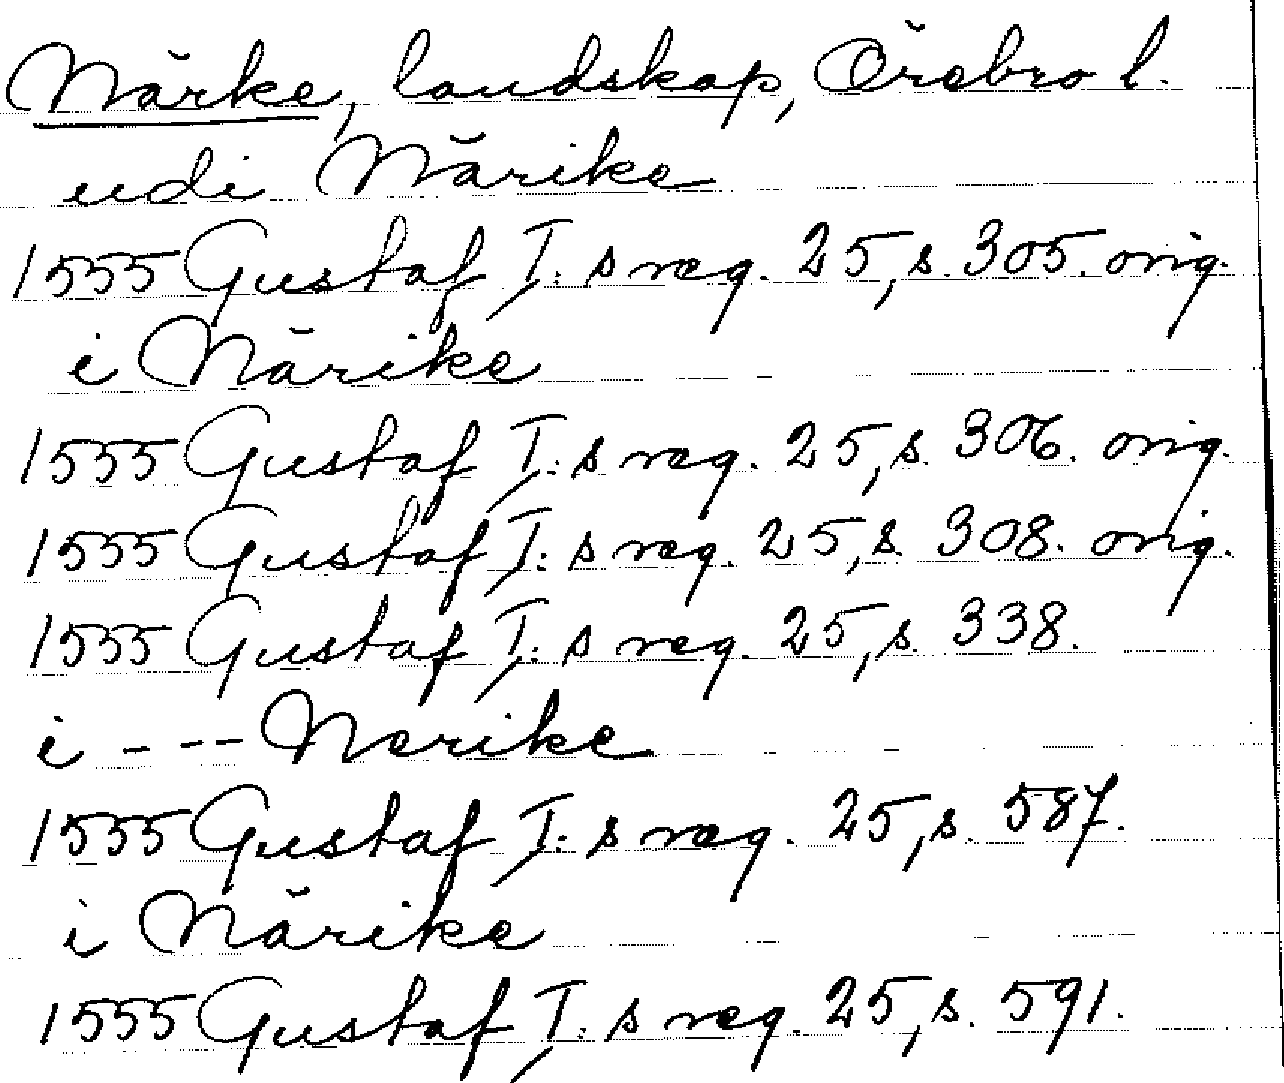 Närke, landskap, Örebro l.
udi Närike
1555 Gustaf I:s reg. 25, s. 305. orig.
i Närike
1555 Gustaf I:s reg. 25, s. 306. orig.
1555 Gustaf I:s reg. 25, s. 308. orig.
1555 Gustaf I:s reg. 25, s. 338.
i --- Nerike
1555 Gustaf I:s reg. 25, s. 587.
i Närike
1555 Gustaf I:s reg. 25, s. 591.